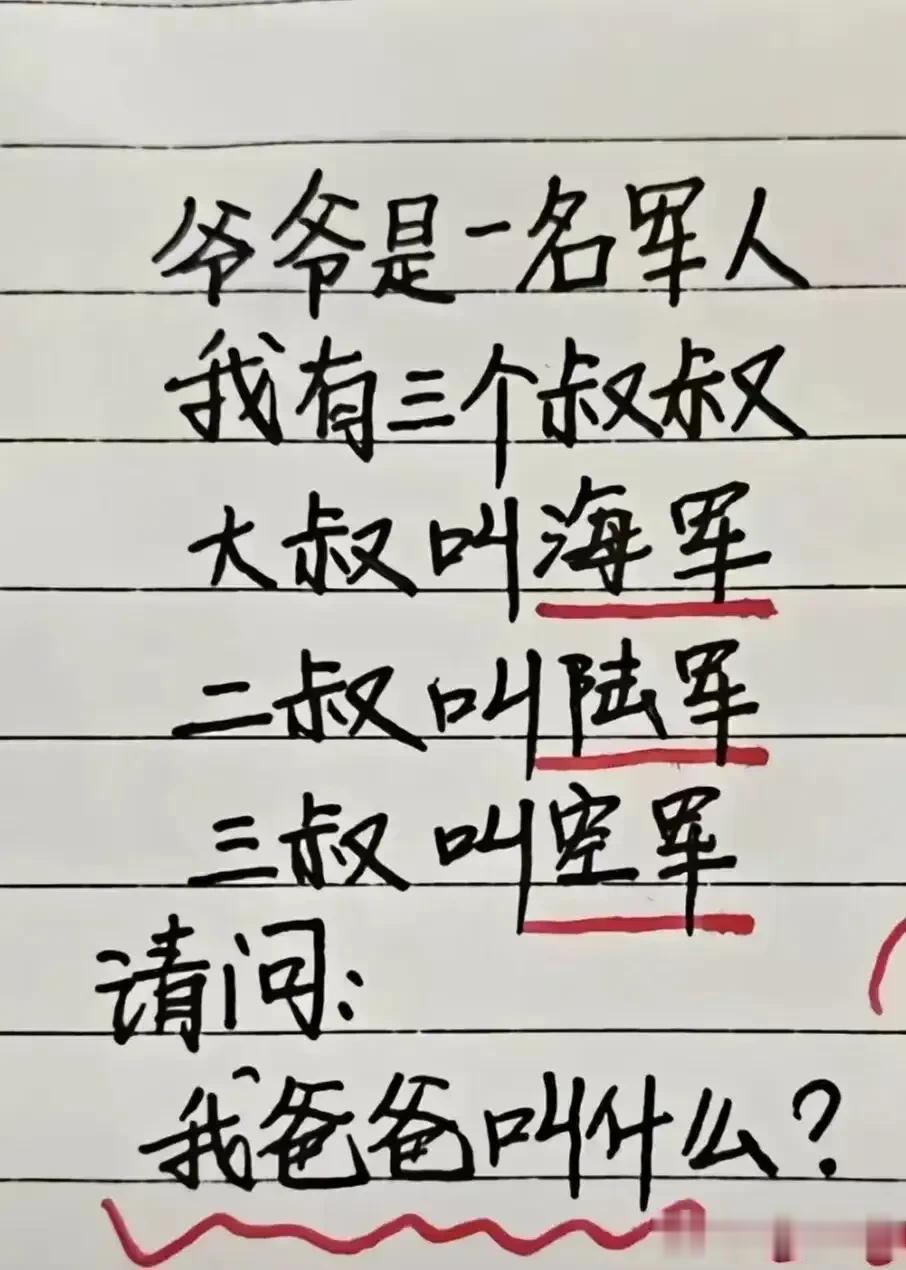 爷爷是一名军人
我有三个叔叔
大叔叫海军
二叔叫陆军
三叔叫空军
请问:
我爸爸叫什么?